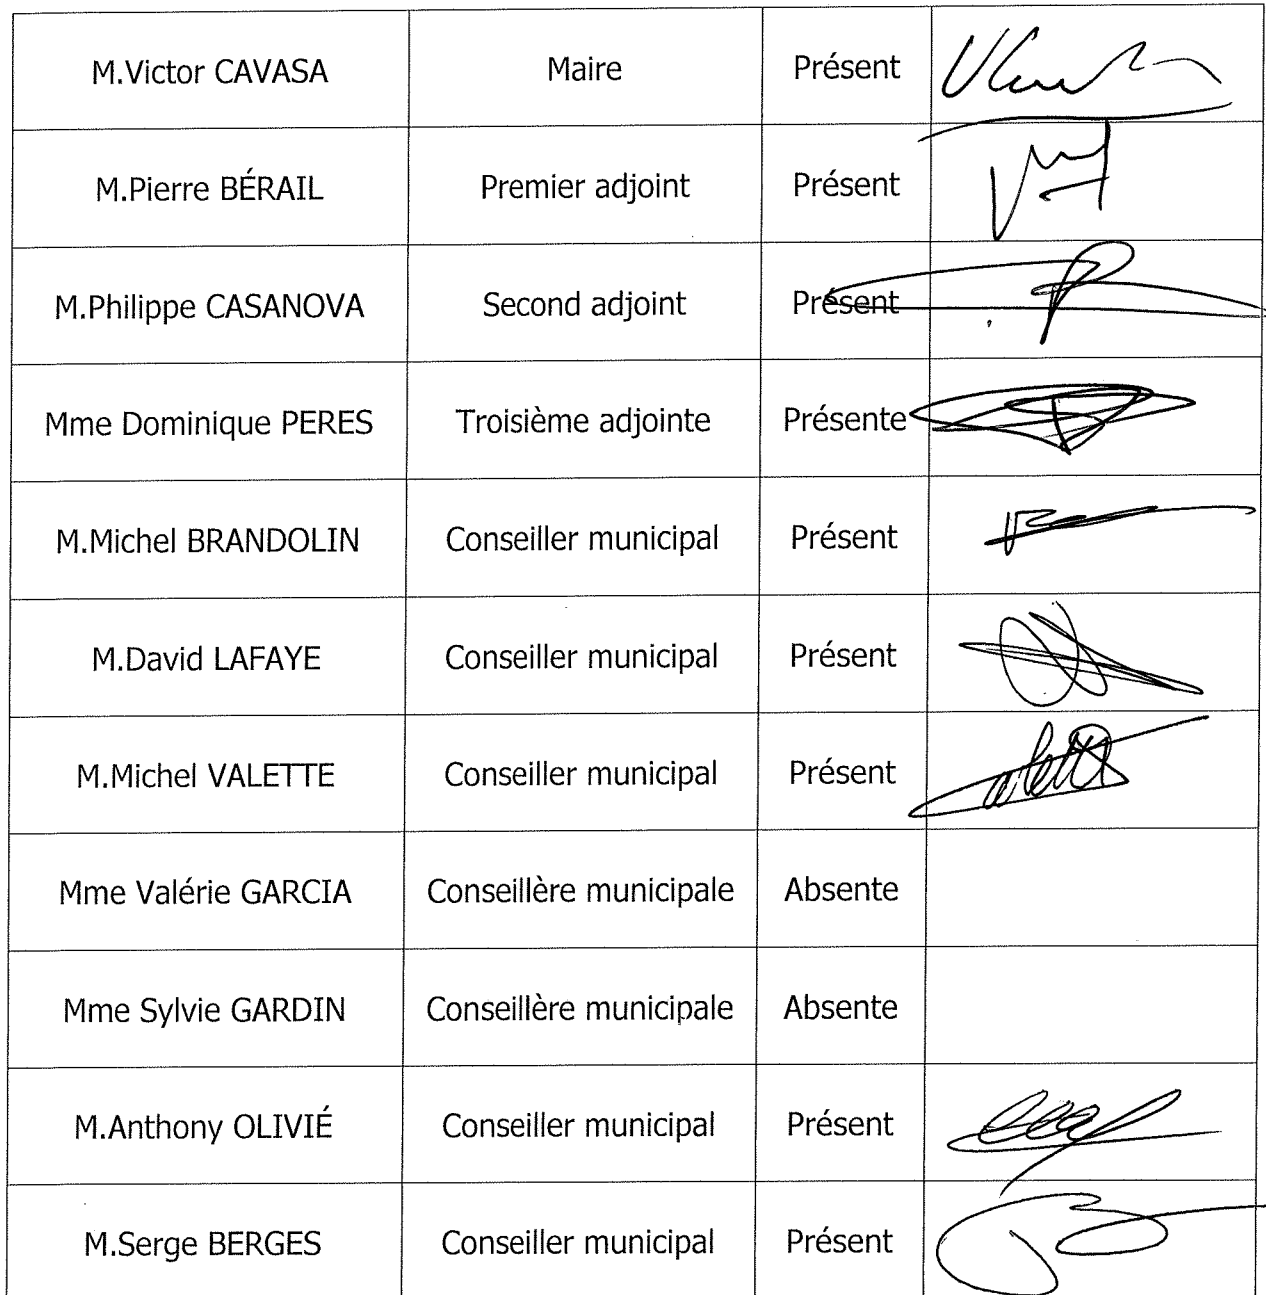 M.Victor CAVASA Maire Présent
M.Pierre BÉRAIL Premier adjoint Présent
M.Philippe CASANOVA Second adjoint Présent
Mme Dominique PERES Troisième adjointe Présente
M.Michel BRANDOLIN Conseiller municipal Présent
M.David LAFAYE Conseiller municipal Présent
M.Michel VALETTE Conseiller municipal Présent
Mme Valérie GARCIA Conseillère municipale Absente
Mme Sylvie GARDIN Conseillère municipale Absente
M.Anthony OLIVIÉ Conseiller municipal Présent
M.Serge BERGES Conseiller municipal Présent